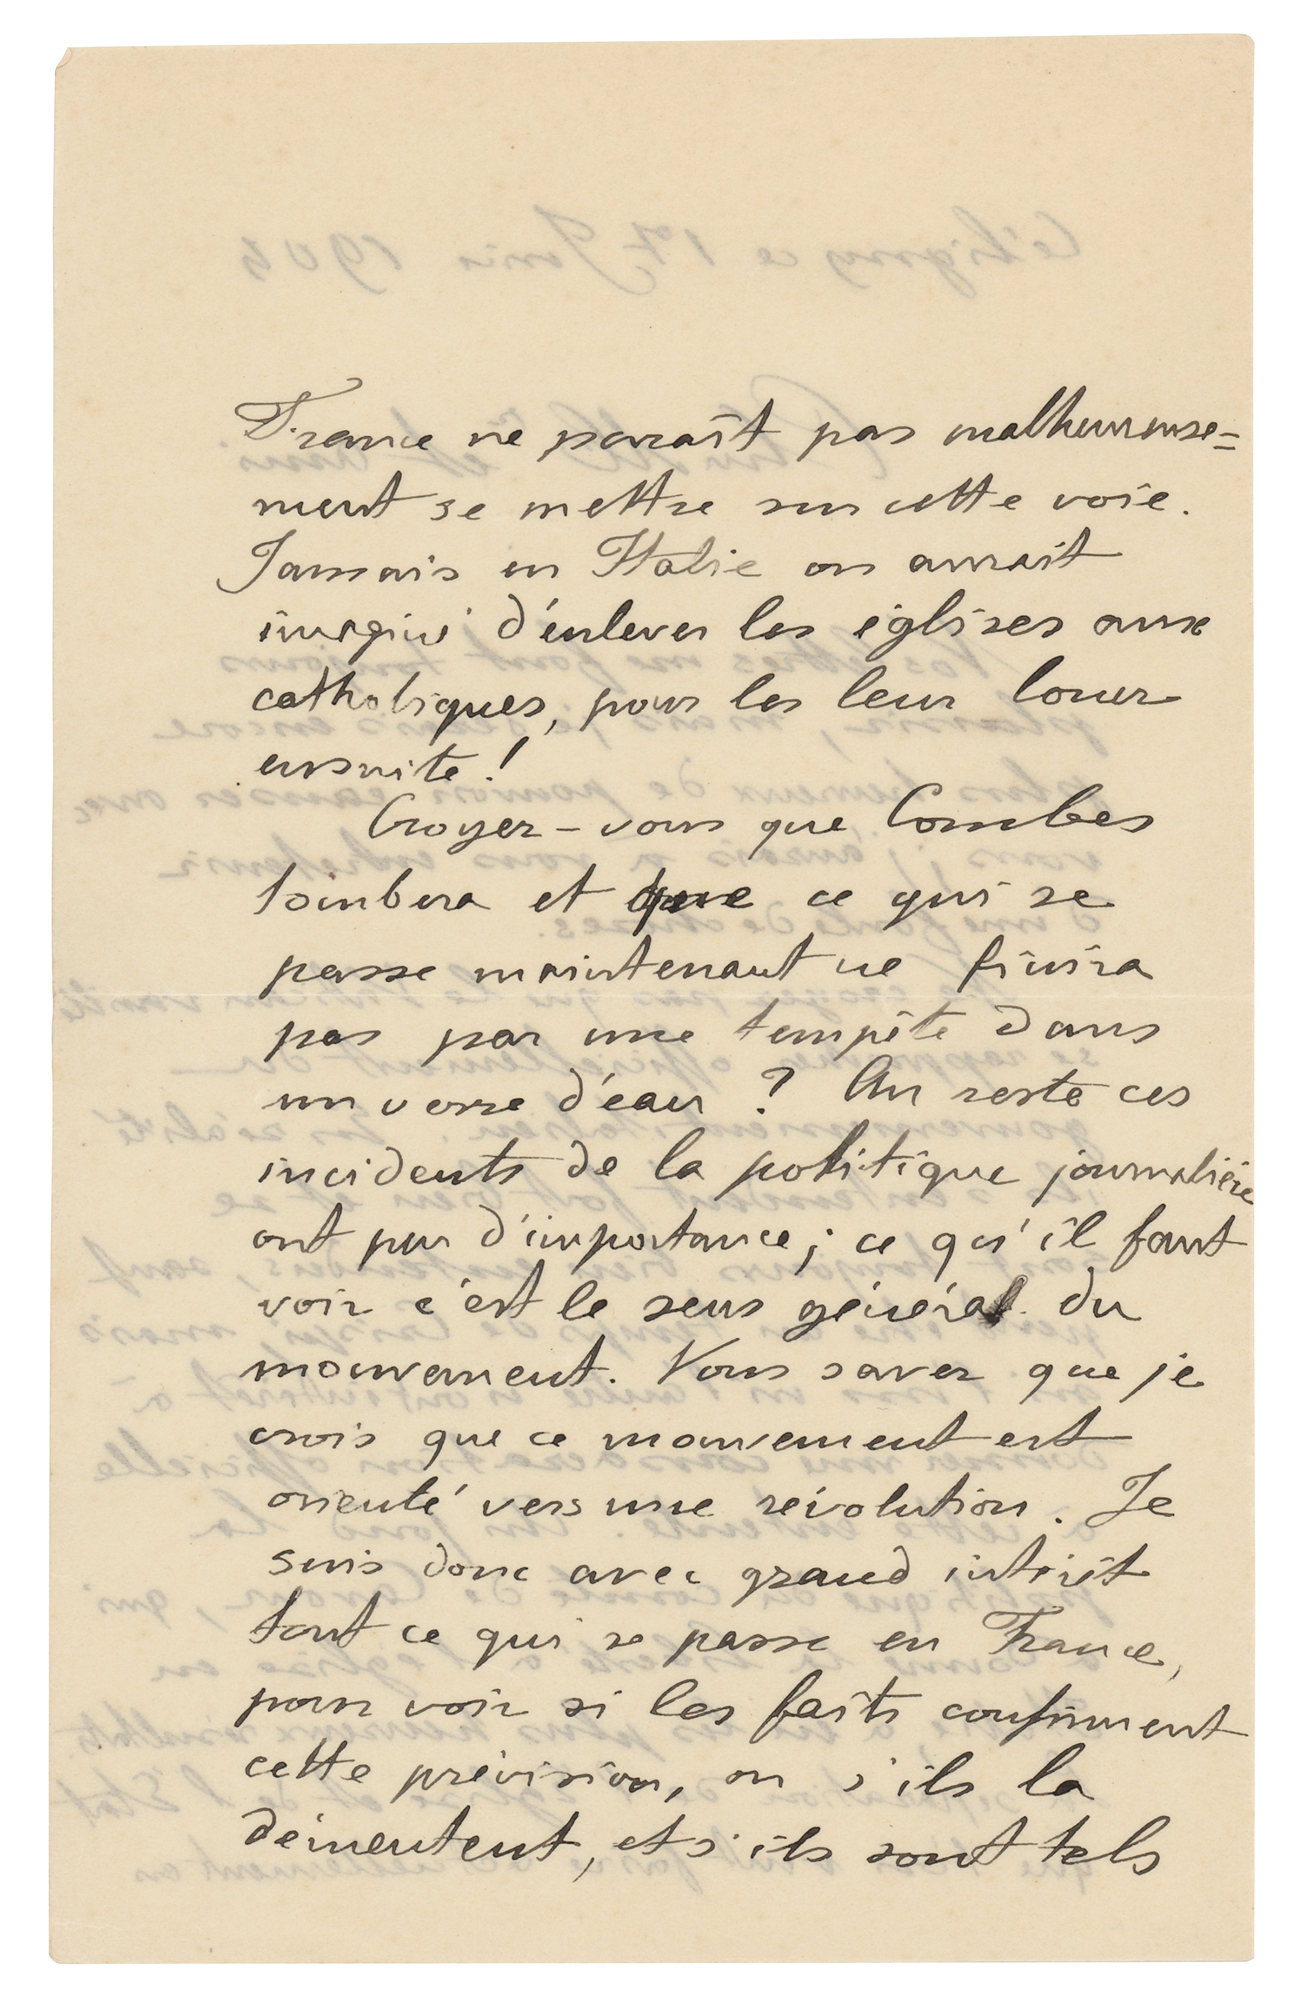 France ne paraît pas malheureuse=
ment se mettre sur cette voie.
Jamais en Italie on aurait
imaginé d'enlever les églises aux
catholiques, pour les leur louer
ensuite !
Croyez-vous que Combes
tombera et que ce qui se
passe maintenant ne finira
pas par une tempête dans
un verre d'eau ? Au reste ces
incidents de la politique journalière
ont peu d'importance ; ce qu'il faut
voir c'est le sens général du
mouvement. Vous savez que je
crois que ce mouvement est
orienté vers une révolution. Je
suis donc avec grand intérêt
tout ce qui se passe en France,
pour voir si les faits confirment
cette prévision, ou s'ils la
démentent, et s'ils sont tels